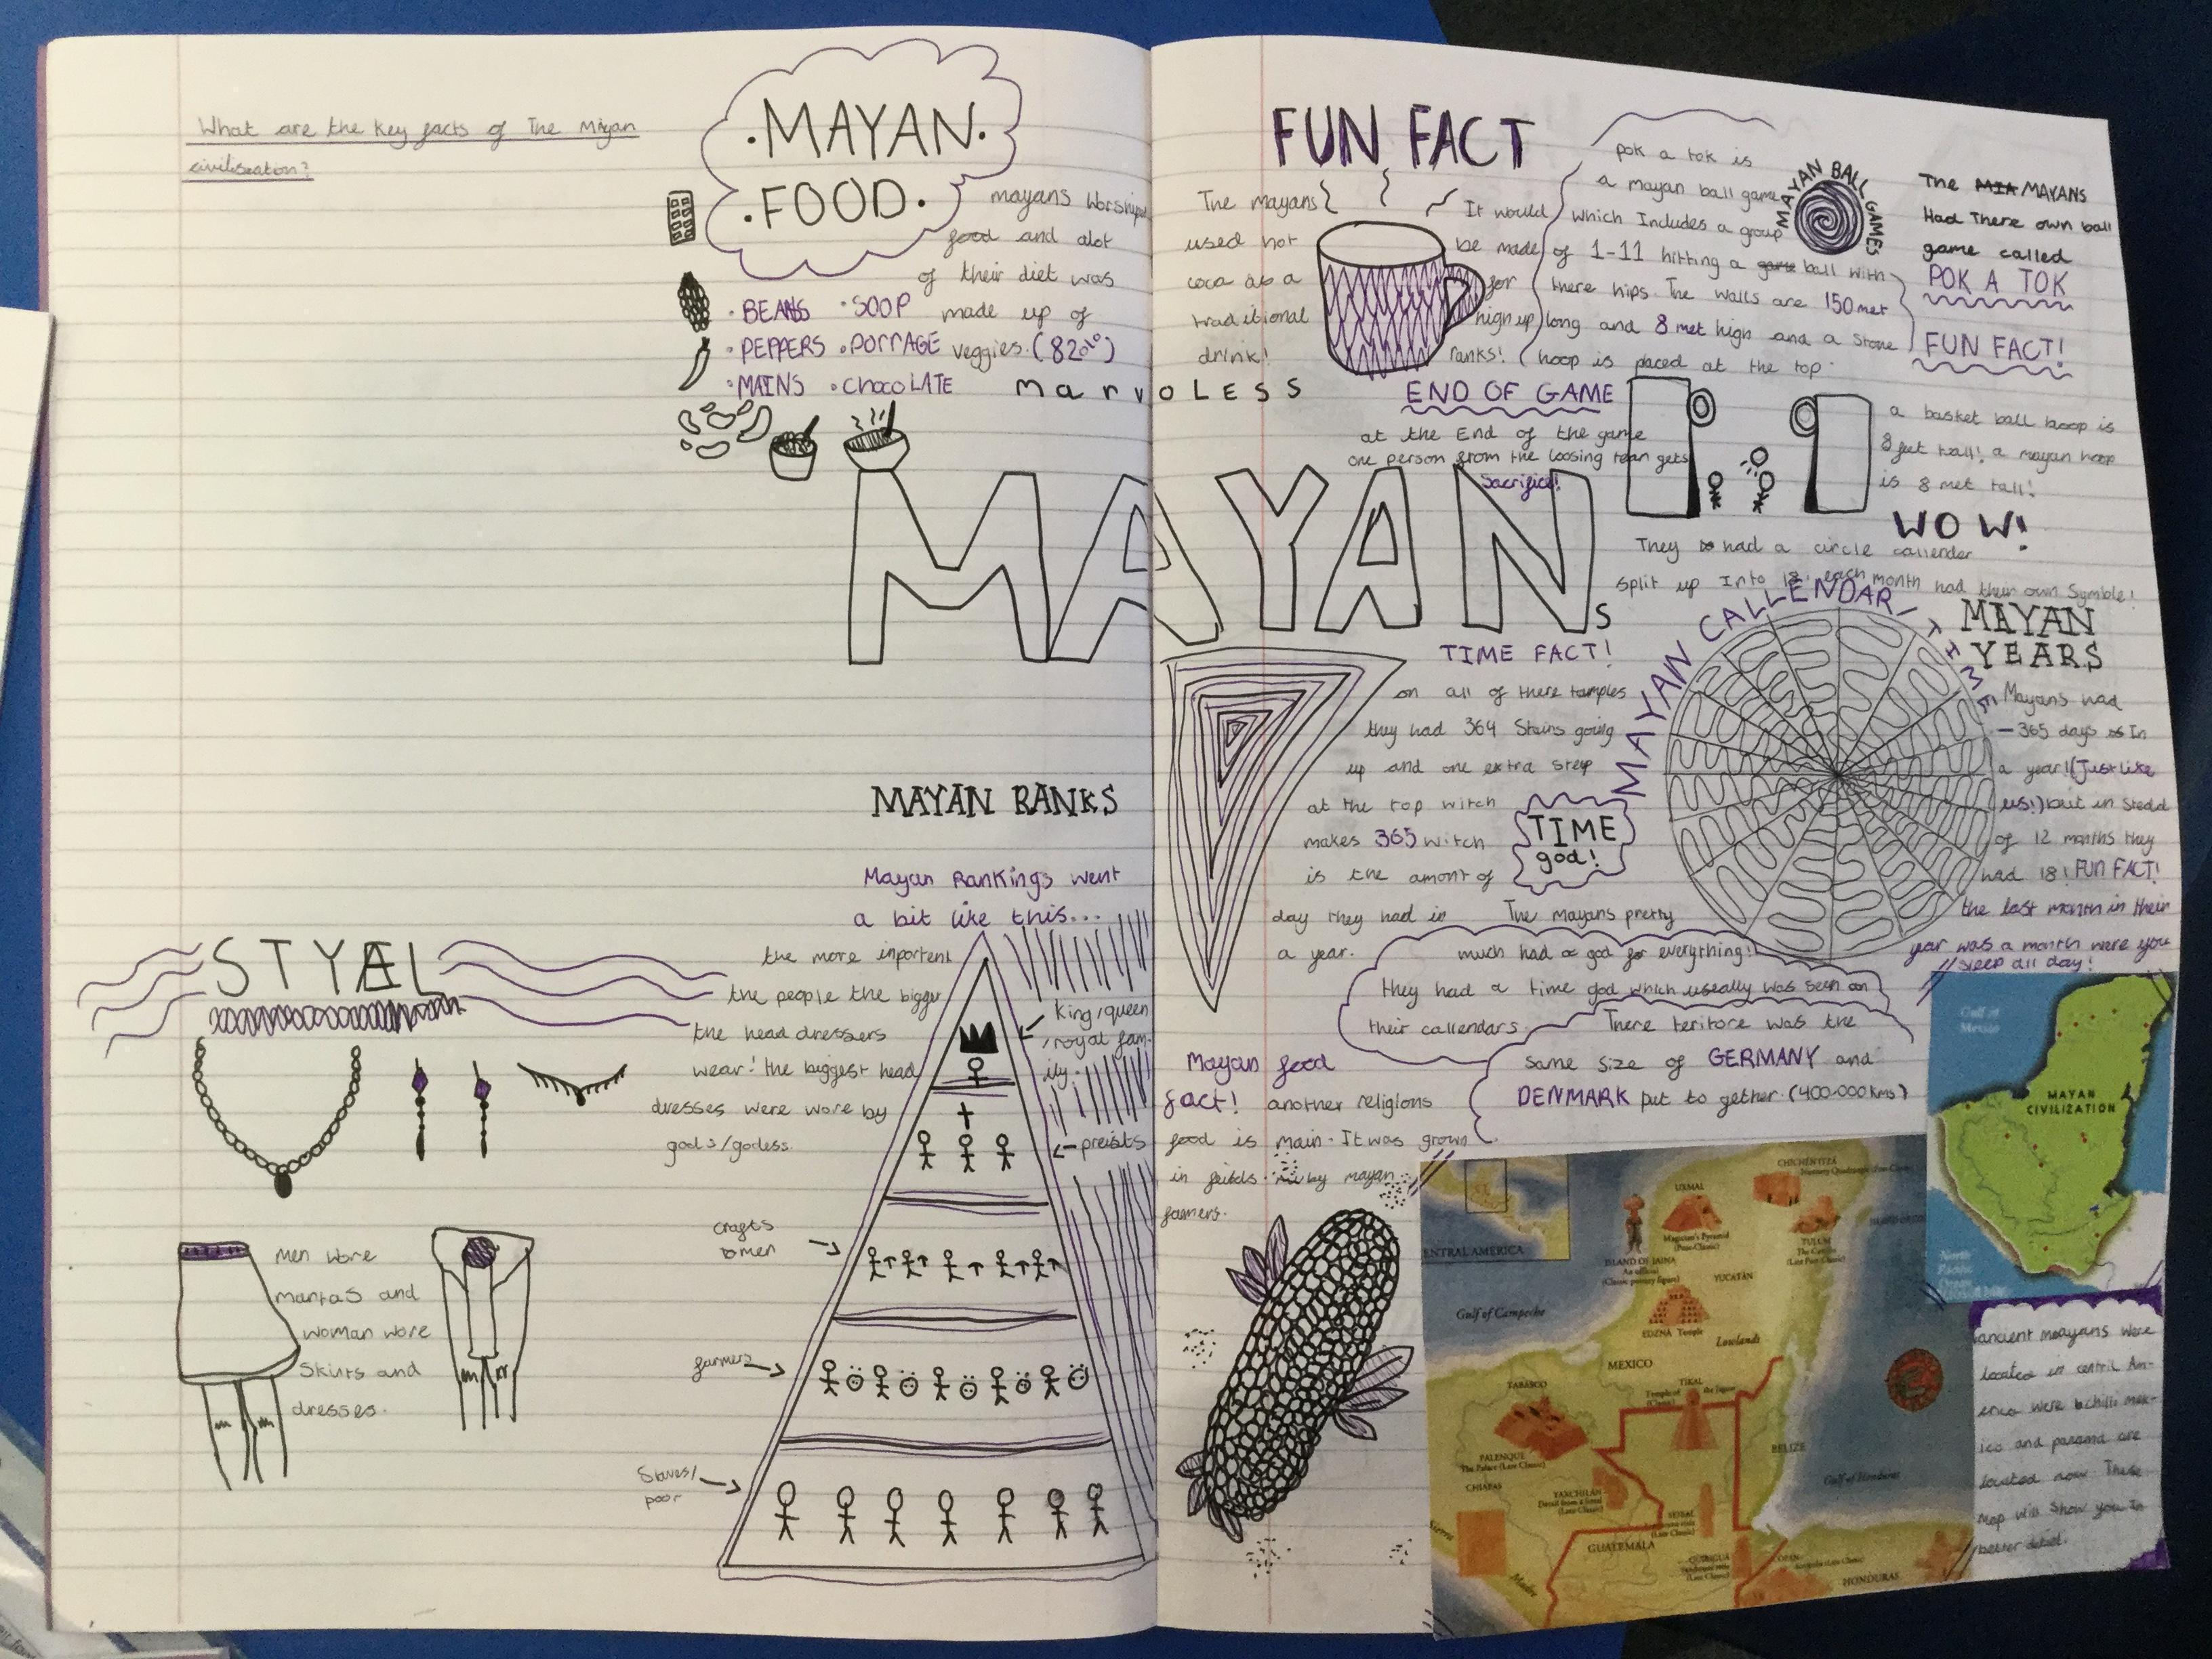 What are the key facts of The Mayan
civilisation?
·MAYAN·
·FOOD·
mayans worshiped
food and alot
of their diet was
made up of
veggies. (82%)
· BEANS · SOOP
· PEPPERS · PORRAGE
· MAINS · ChocoLATE
marvoLESS
MAYANs
MAYAN RANKS
Mayan Rankings went
a bit like this...
the more inportent
the people the biggr
the head dressers
wear! the biggest head
dresses were wore by
gods/godess.
King/queen
/royal fam-
ily.
preists
crafts
men
farmers
Slaves/
poor
STYAL
men wore
mantas and
woman wore
Skirts and
dresses.
FUN FACT
The mayans
used hot
coca as a
traditional
drink!
It would
be made
for
high up
ranks!
pok a tok is
a mayan ball game
which Includes a group
of 1-11 hitting a game ball with
there hips. The walls are 150 met
long and 8 met high and a stone
hoop is paced at the top.
MAYAN BALL GAMES
The MIA MAYANS
Had There own ball
game called
POK A TOK
FUN FACT!
END OF GAME
at the End of the game
one person from the loosing team gets
Sacrifice!
a basket ball hoop is
8 feet tall! a mayan hoop
is 8 met tall!
WOW!
They had a circle callender
split up Into 18, each month had their own Symble!
MAYAN CALLENDAR/THME
TIME FACT!
on all of there tamples
they had 364 Stairs going
up and one extra step
at the top witch
makes 365 witch
is the amont of
day they had in
a year.
TIME
god!
MAYAN
YEARS
Mayans had
365 days In
a year! (Just like
us!) but in stedd
of 12 months they
had 18! FUN FACT!
the last month in their
year was a month were you
sleep all day!
The Mayans pretty
much had a god for everything!
they had a time god which useally was seen on
their callendars
There teritore was the
same size of GERMANY and
DENMARK put to gether. (400.000 kms)
Mayan food
fact! another religions
food is main. It was grown
in feilds by mayan
famers.
Gulf of
Mexico
MAYAN
CIVILIZATION
North
Pacific
CENTRAL AMERICA
CHICHÉN ITZÁ
UXMAL
Magician's Pyramid
(Post-Classic)
TULUM
ISLAND OF JAINA
An official
(Classic pottery figure)
YUCATÁN
Gulf of Campeche
EDZNÁ Temple
Lowlands
MEXICO
TABASCO
TIKAL
PALENQUE
The Palace (Late Classic)
CHIAPAS
YAXCHILÁN
BELIZE
Gulf of Honduras
GUATEMALA
QUIRIGUÁ
COPÁN
HONDURAS
Sierra
Madre
ancient mayans were
located in centril Am-
erica were bchilli mex-
ico and panama are
located now. These
map will show you In
better detail.